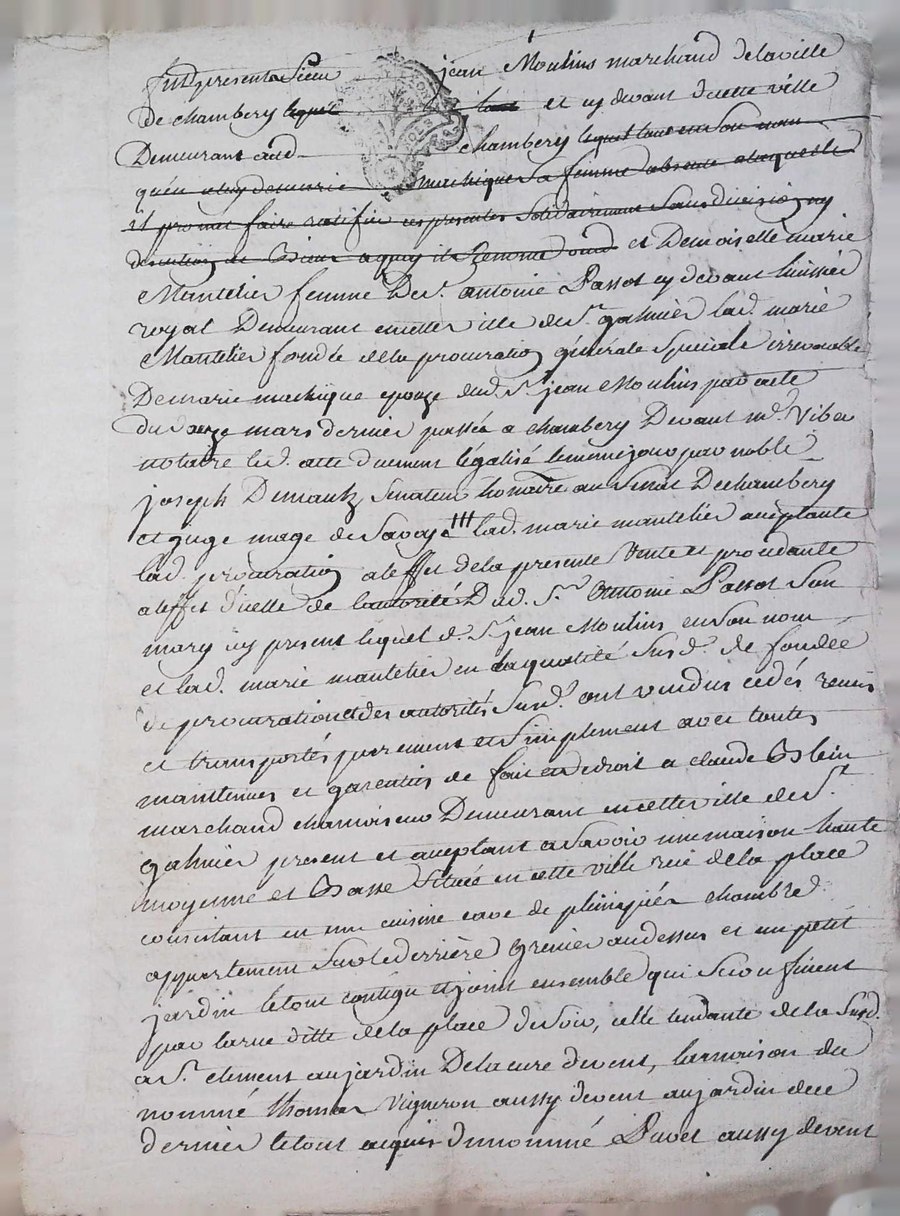 fut present Sieur jean Moulins marchand de la ville
de chambery lequel tant et cy devant de cette ville
Demeurant aud. chambery lequel tant en son nom
qu'en celuy de marie machique sa femme absente a laquelle
il promet faire ratifier ces presentes solidairement sans division ny
de Biens a quoy ils et Demoiselle marie
Mantelier femme De sr. antoine Passot cy devant huissier
royal Demeurant en cette ville de st. galmier lad. marie
Mantelier fondée de la procuration générale speciale irrevocable
De marie machique epouze dud. sr. jean Moulins par acte
du onze mars dernier passée a chambery Devant me.
notaire led. acte duement légalisé le meme jour par noble
joseph Senateur honnaire au Senat De chambery
et juge mage de Savoye lad. marie mantelier aceptante
lad. procuration a l'effet de la presente vente et procedante
a l'effet d'icelle de l'autorité Dud. sr. Antoine Passot son
mary icy present lequel d. sr. jean Moulins en son nom
et lad. marie mantelier en sa qualité susd. de fondée
de procuration et des autorités susd. ont vendus cédés remis
et transportés purement et simplement avec toutes
maintenues et garenties de fait et de droit a claude
marchand chamoiseur Demeurant en cette ville de st.
galmier present et aceptant a savoir une maison haute
moyenne et Basse située en cette ville rue de la place
consistant en une cuisine cave de plein pied chambre
appartement sur le derrière grenier au dessus et un petit
jardin le tout contigu et joint ensemble qui se confinent
par la rue ditte de la place de soir, celle tendante de la susd.
a st. clement au jardin De la cure de vent, la maison du
nommé thomas vigneron aussy de vent au jardin de ce
dernier le tout acquis du nommé aussy de vent